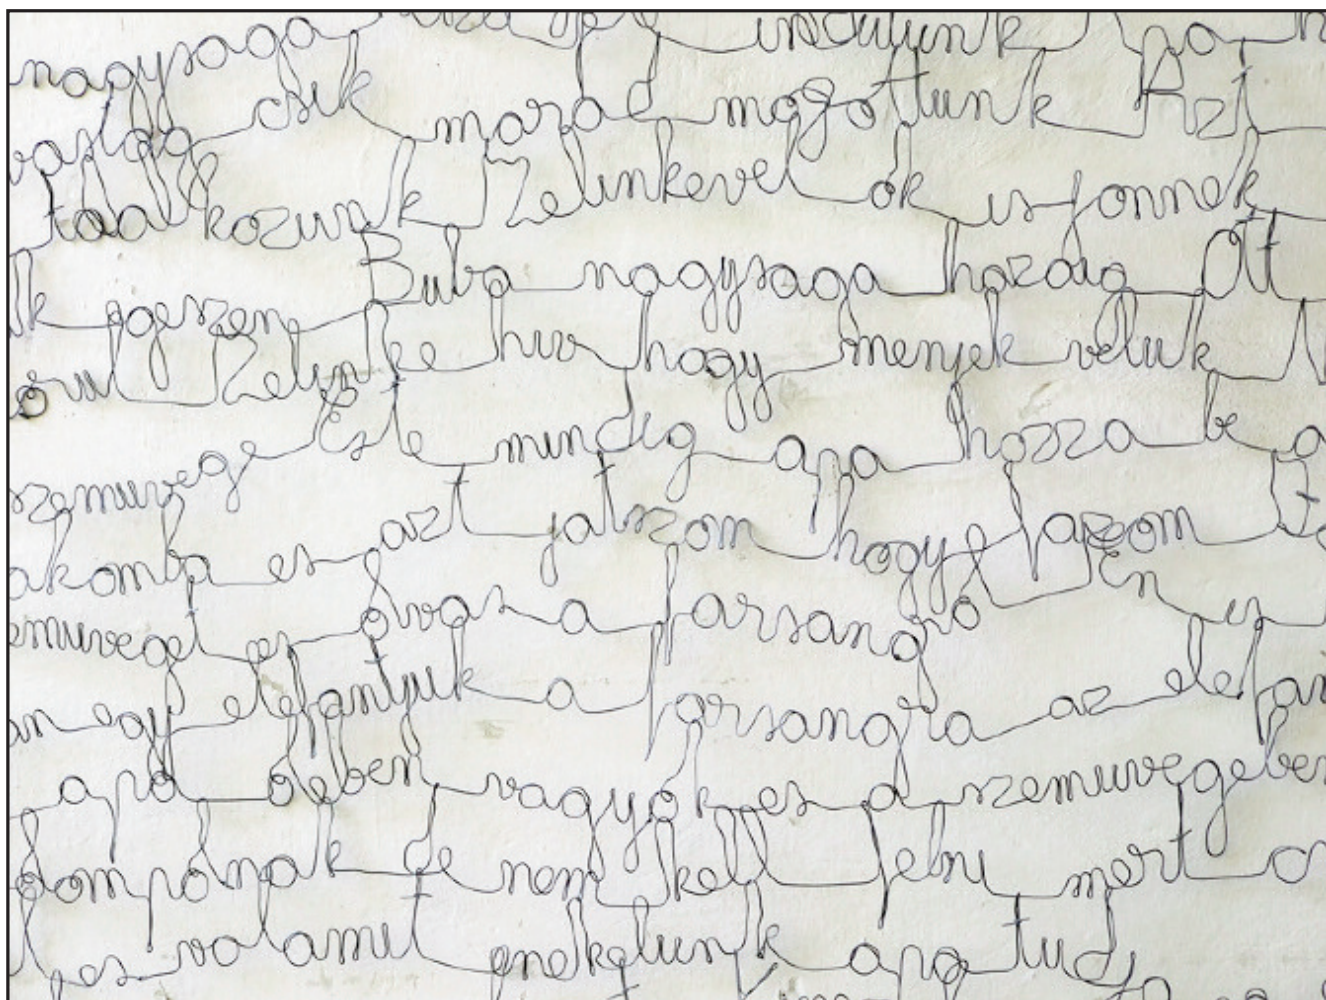 nagysaga indulunk
vastag csik marad mogottunk Azt
talalkozunk Zelinkevel ok is jonnek
egeszen Buba nagysaga hazaig Ott
Zelinke hiv hogy menjek veluk
szemuvege Este mindig apa hozza be a
akomba es azt jatszom hogy fazom
emuveget es olvas a farsangro En is
an egy elefantjuk a farsangra az elefan
apa oleben vagyok es a szemuvegeben
dompanak de nem kell felni mert
es valamit enekelunk apa tudja